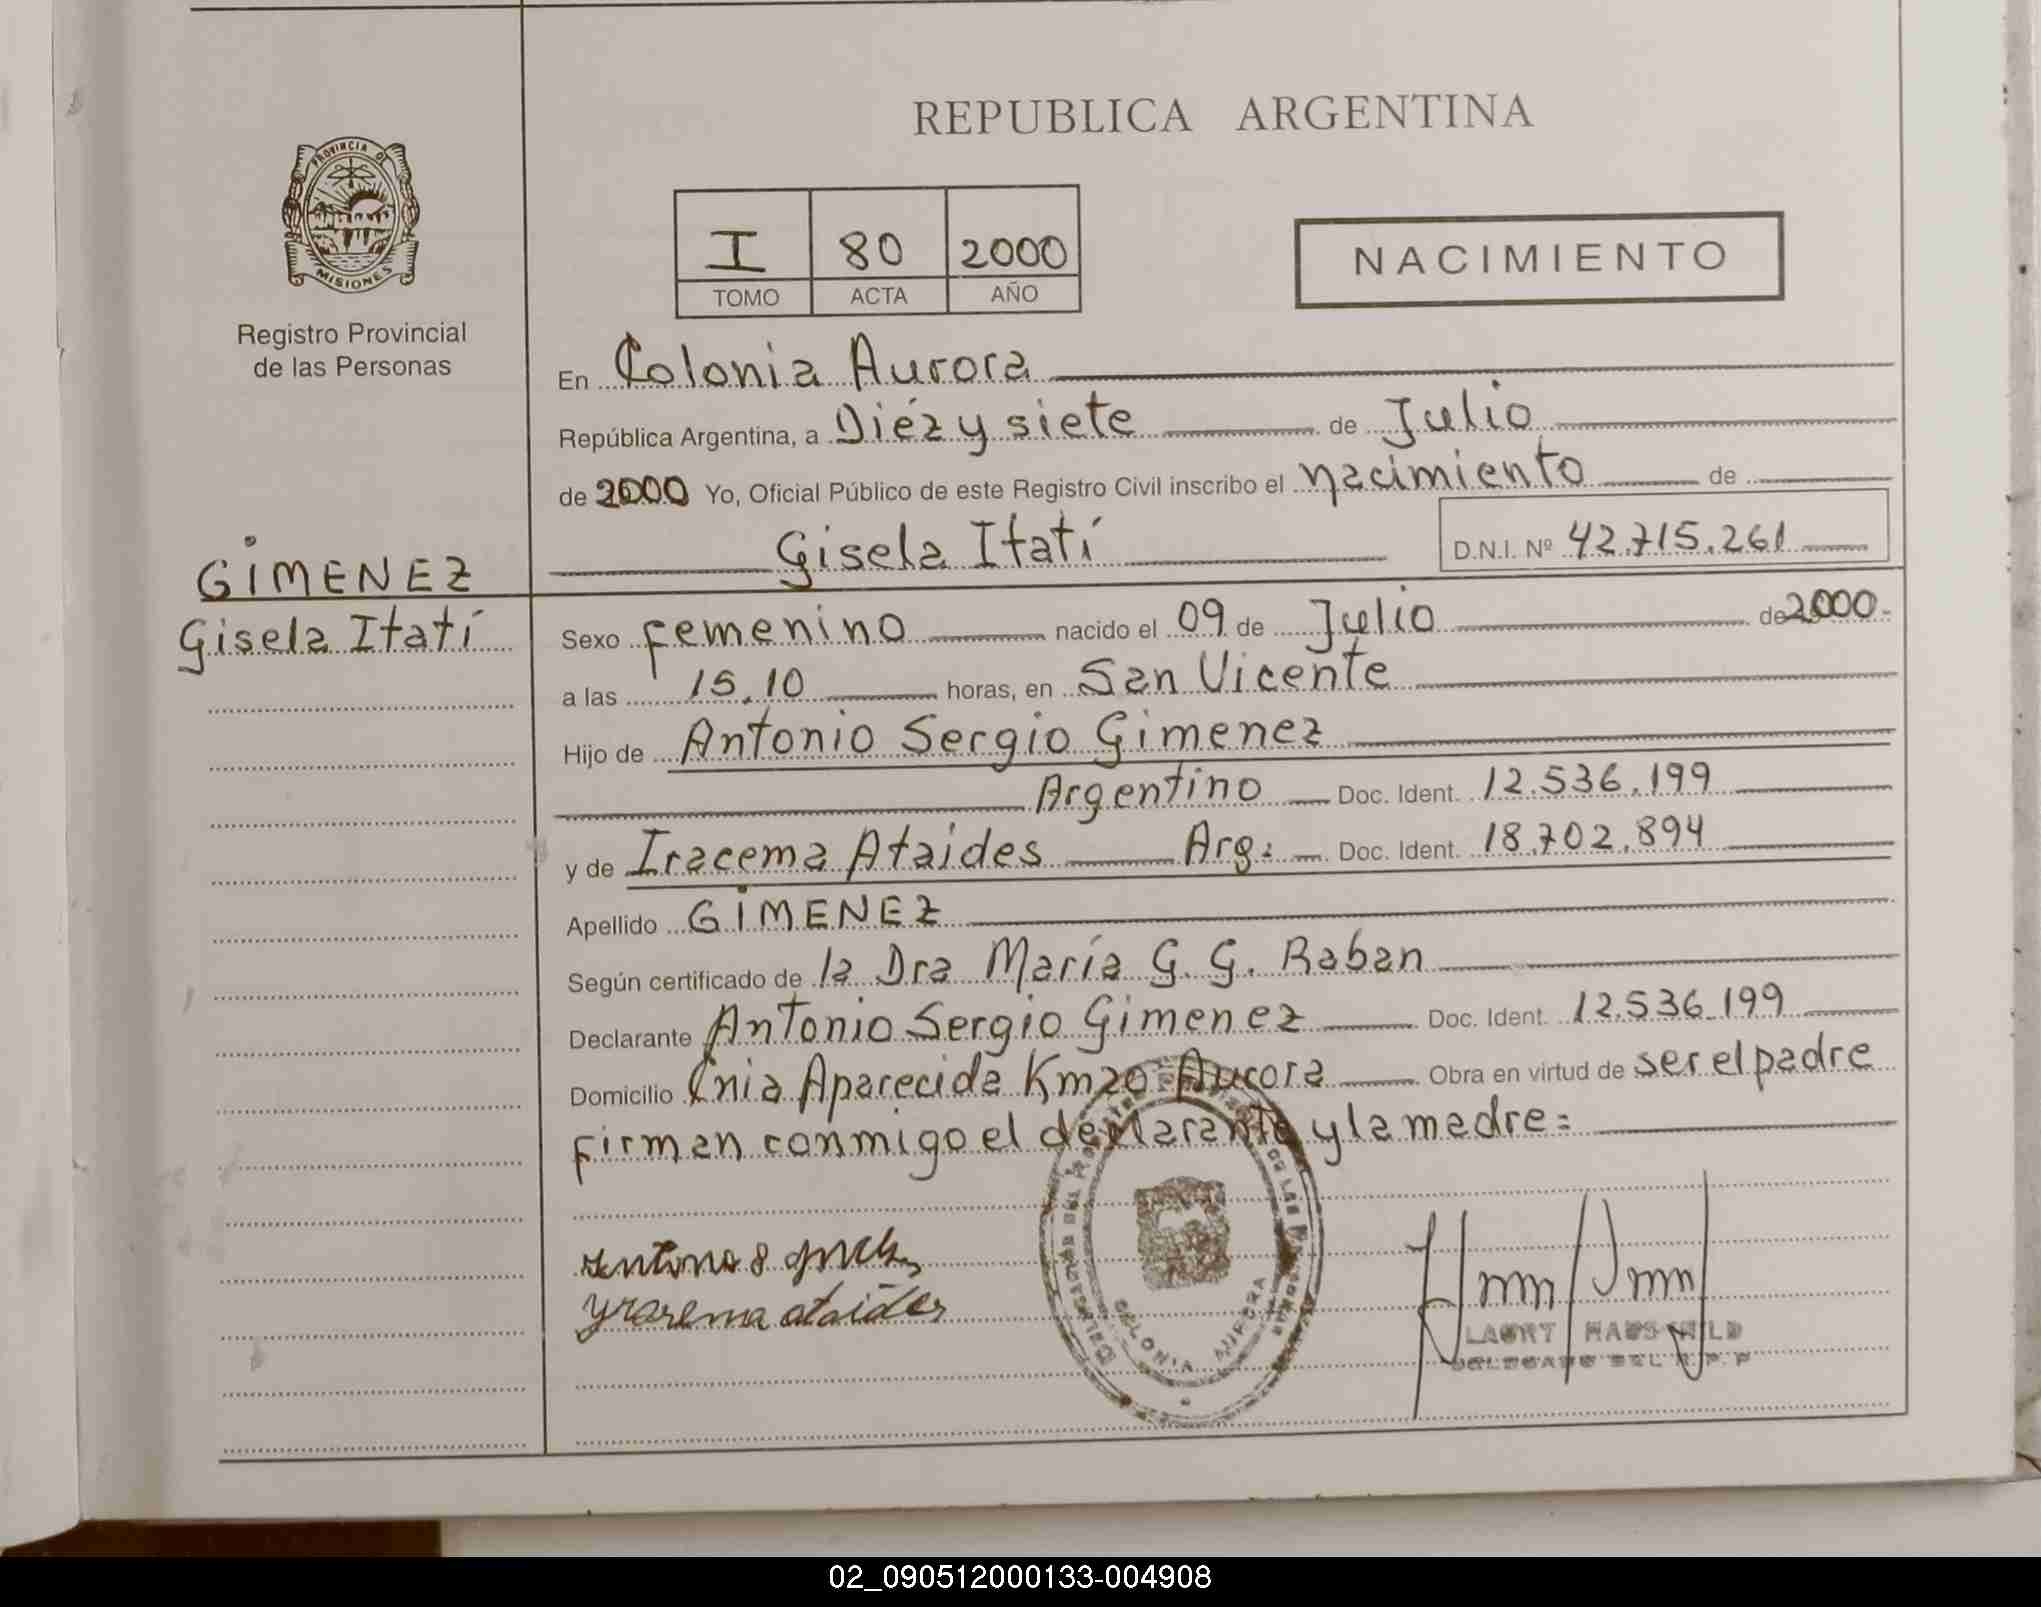 REPUBLICA ARGENTINA
PROVINCIA DE
MISIONES
Registro Provincial
de las Personas
I 80 2000
TOMO ACTA AÑO
NACIMIENTO
En Colonia Aurora
República Argentina, a Diéz y siete de Julio
de 2000 Yo, Oficial Público de este Registro Civil inscribo el nacimiento de
Gisela Itatí D.N.I. Nº 42.715.261
GIMENEZ
Gisela Itatí
Sexo femenino nacido el 09 de Julio de 2000
a las 15.10 horas, en San Vicente
Hijo de Antonio Sergio Gimenez
Argentino Doc. Ident. 12.536.199
y de Iracema Ataides Arg: Doc. Ident. 18.702.894
Apellido GIMENEZ
Según certificado de la Dra María G. G. Raban
Declarante Antonio Sergio Gimenez Doc. Ident. 12.536.199
Domicilio Cnia Aparecida Km20 Aurora Obra en virtud de ser el padre
firman conmigo el declarante y la madre=
Yracema ataides
COLONIA AURORA
DELEGADO DEL R.P.P
02_090512000133-004908